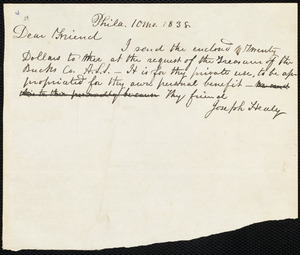 Phila. 10 mo. 1838.
Dear Friend
I send the enclosed Twenty
Dollars to thee at the request of the Treasurer of the
Bucks Co. A.S.S. — It is for thy private use, to be ap-
propriated for thy own personal benefit —
Thy friend
Joseph Healy